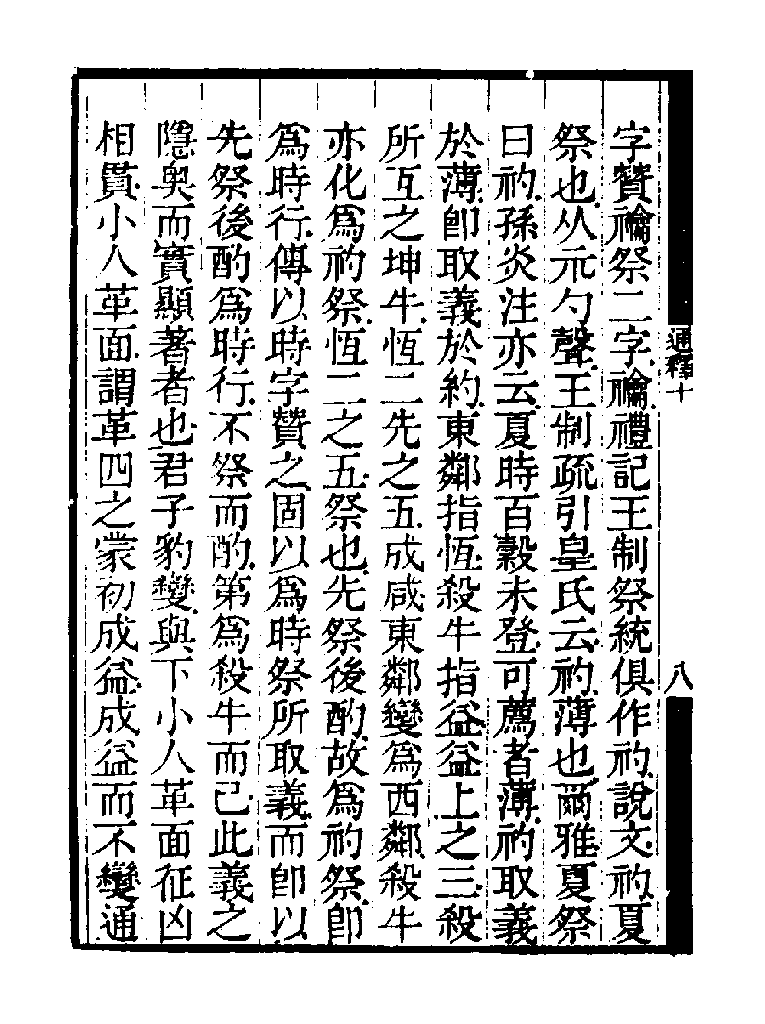 字贊禴祭二字禴禮記王制祭統俱作礿說文礿夏
祭也从元勺聲王制疏引皇氏云礿薄也爾雅夏祭
曰礿孫炎注亦云夏時百穀未登可薦者薄礿取義
於薄卽取義於約東鄰指恆殺牛指益益上之三殺
所互之坤牛恆二先之五成咸東鄰變爲西鄰殺牛
亦化爲礿祭恆二之五祭也先祭後酌故爲礿祭卽
爲時行傳以時字贊之固以爲時祭所取義而卽以
先祭後酌爲時行不祭而酌第爲殺牛而已此義之
隱奥而實顯著者也君子豹變與下小人革面征凶
相貫小人革面謂革四之蒙初成益成益而不變通
通釋十
八